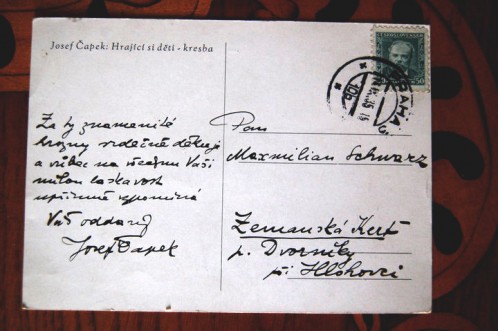 Josef Čapek: Hrající si děti - kresba
Za ty znamenité
hrozny srdečně děkuji
a vůbec na všechnu Vaši
milou laskavost
upřímně vzpomíná
Váš oddaný
Josef Čapek
Pan
Maxmilian Schwarz
Zemanská Kert
p. Dvorníky
při Hlohovci